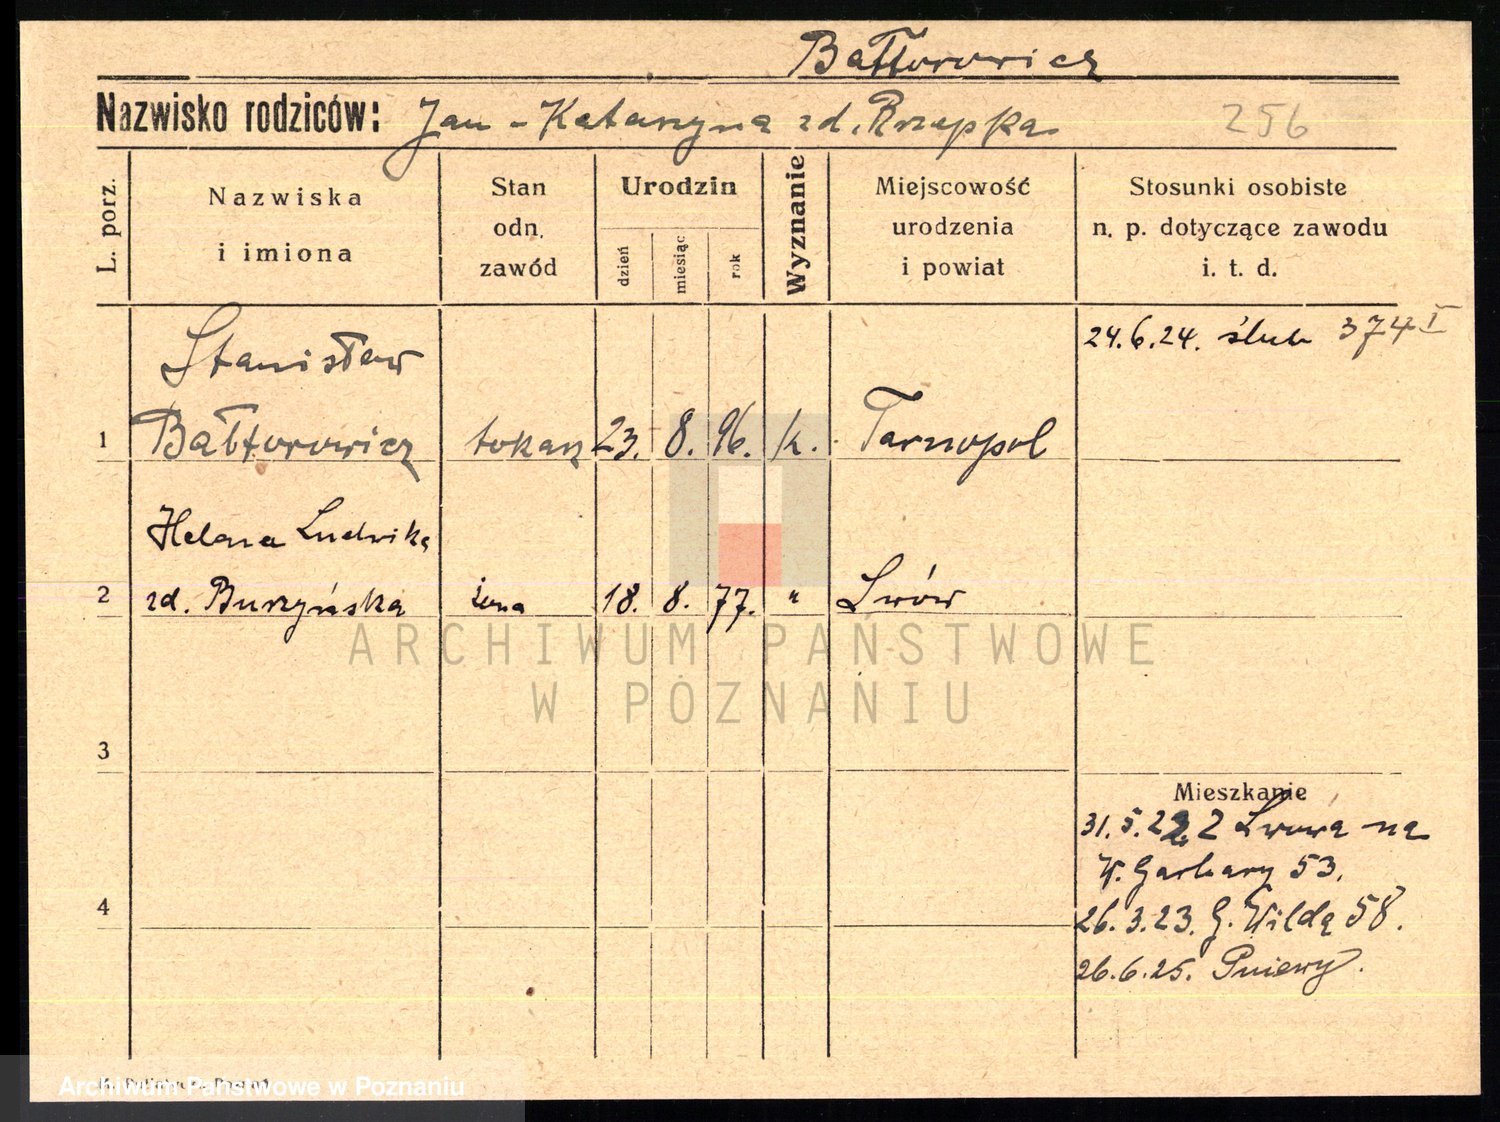 Bałtorowicz
Nazwisko rodziców: Jan - Katarzyna zd. Rzepka
256
L. porz.
Nazwiska
i imiona
Stan
odn.
zawód
Urodzin
dzień
miesiąc
rok
Wyznanie
Miejscowość
urodzenia
i powiat
Stosunki osobiste
n. p. dotyczące zawodu
i. t. d.
24.6.24. ślub 374 I
Stanisław
1 Bałtorowicz tokarz 23. 8. 96. k. Tarnopol
Helena Ludwika
2 zd. Buszyńska żona 18. 8. 77. " Lwów
ARCHIWUM PAŃSTWOWE
W POZNANIU
3
Mieszkanie
31.5.22. Z Lwowa na
W. Garbary 53.
4
26.3.23. G. Wildą 58.
26.6.25. Pniewy.
Archiwum Państwowe w Poznaniu